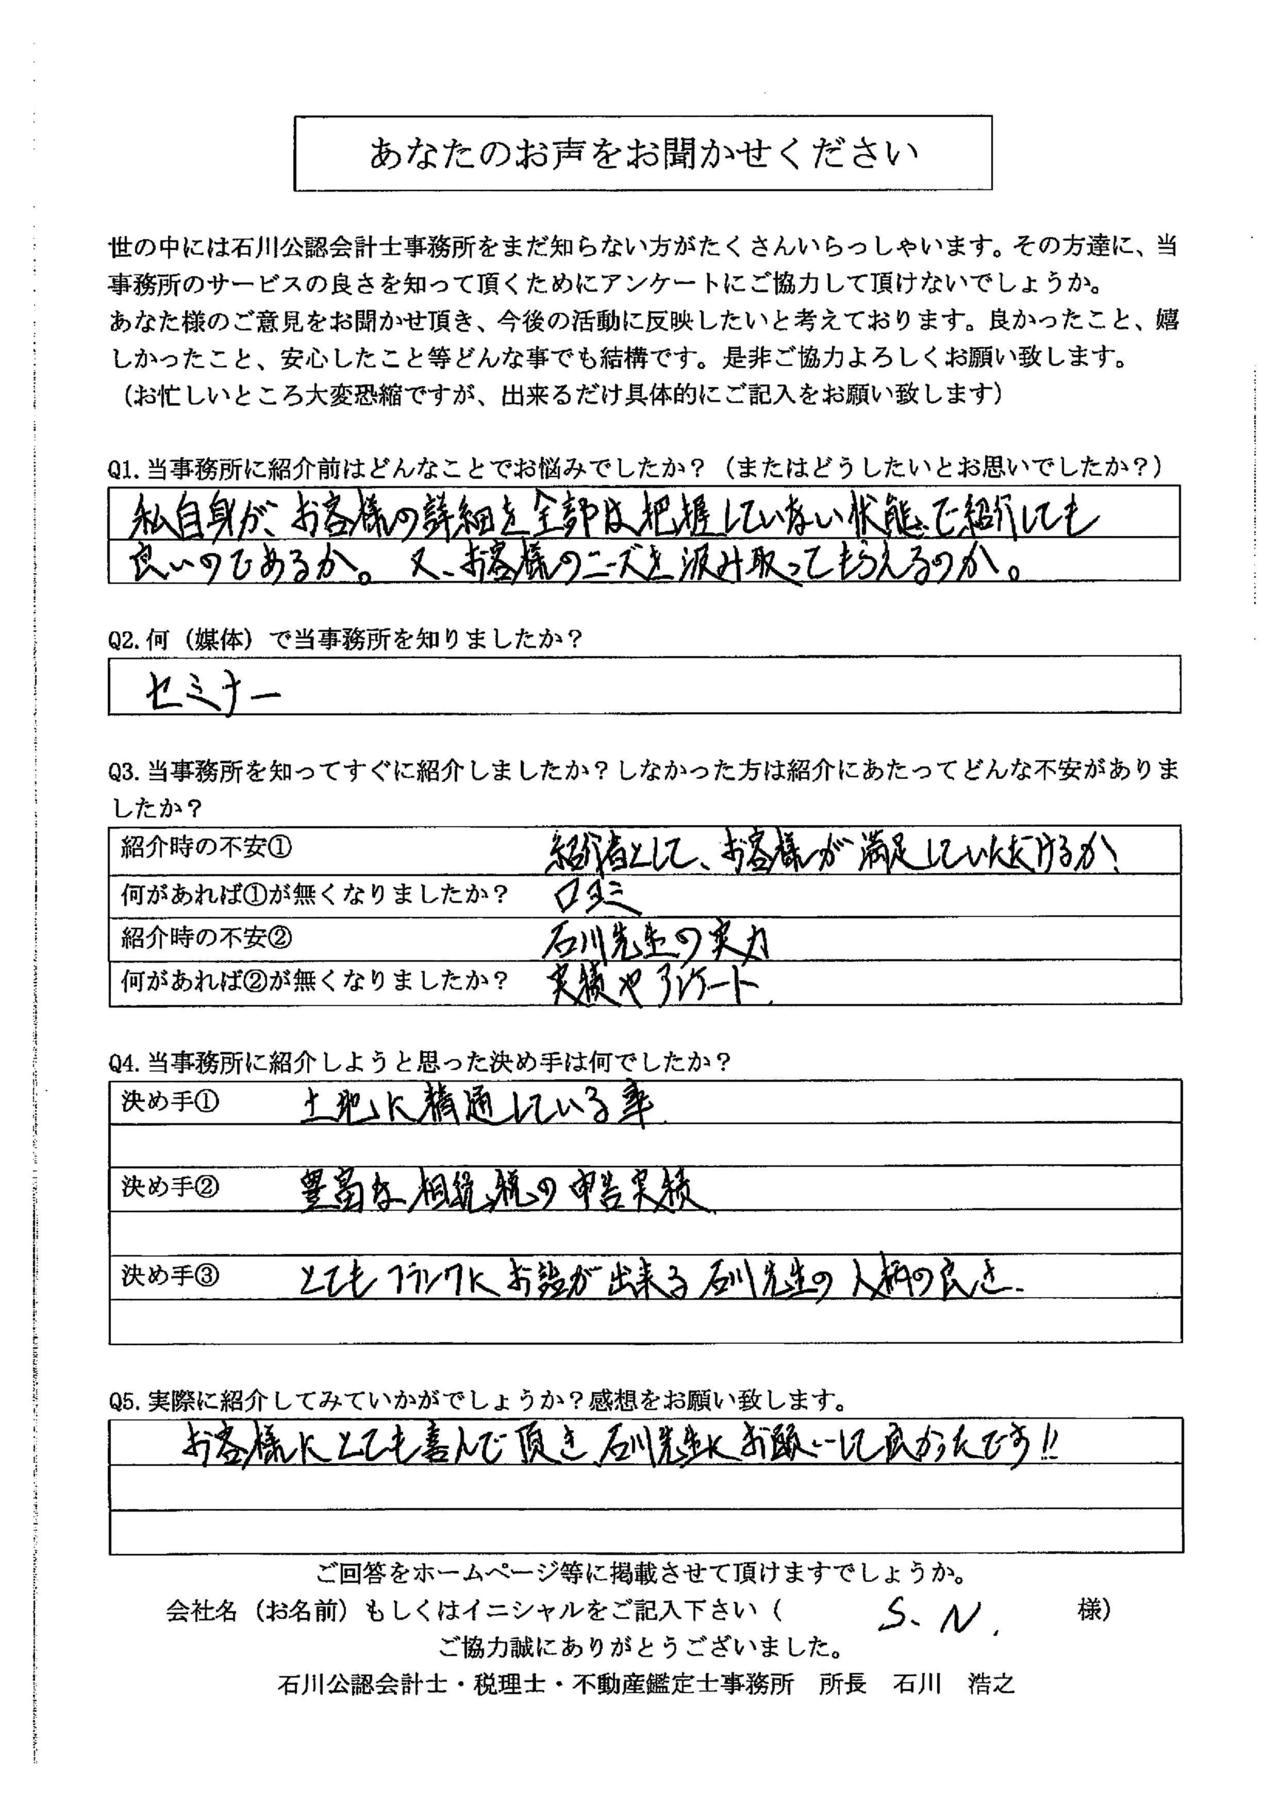 あなたのお声をお聞かせください
世の中には石川公認会計士事務所をまだ知らない方がたくさんいらっしゃいます。その方達に、当
事務所のサービスの良さを知って頂くためにアンケートにご協力して頂けないでしょうか。
あなた様のご意見をお聞かせ頂き、今後の活動に反映したいと考えております。良かったこと、嬉
しかったこと、安心したこと等どんな事でも結構です。是非ご協力よろしくお願い致します。
（お忙しいところ大変恐縮ですが、出来るだけ具体的にご記入をお願い致します）
Q1.当事務所に紹介前はどんなことでお悩みでしたか？（またはどうしたいとお思いでしたか？）
私自身が、お客様の詳細を全部は把握していない状態で紹介しても
良いのであるか。又、お客様のニーズを汲み取ってもらえるのか。
Q2.何（媒体）で当事務所を知りましたか？
セミナー
Q3.当事務所を知ってすぐに紹介しましたか？しなかった方は紹介にあたってどんな不安がありま
したか？
紹介時の不安① 紹介者として、お客様が満足していただけるか。
何があれば①が無くなりましたか？ 口コミ
紹介時の不安② 石川先生の実力
何があれば②が無くなりましたか？ 実績やアンケート
Q4.当事務所に紹介しようと思った決め手は何でしたか？
決め手① 土地に精通している事
決め手② 豊富な相続税の申告実績
決め手③ とてもフランクにお話が出来る石川先生の人柄の良さ
Q5.実際に紹介してみていかがでしょうか？感想をお願い致します。
お客様にとても喜んで頂き、石川先生にお願いして良かったです!!
ご回答をホームページ等に掲載させて頂けますでしょうか。
会社名（お名前）もしくはイニシャルをご記入下さい（ S. N. 様）
ご協力誠にありがとうございました。
石川公認会計士・税理士・不動産鑑定士事務所　所長　石川　浩之